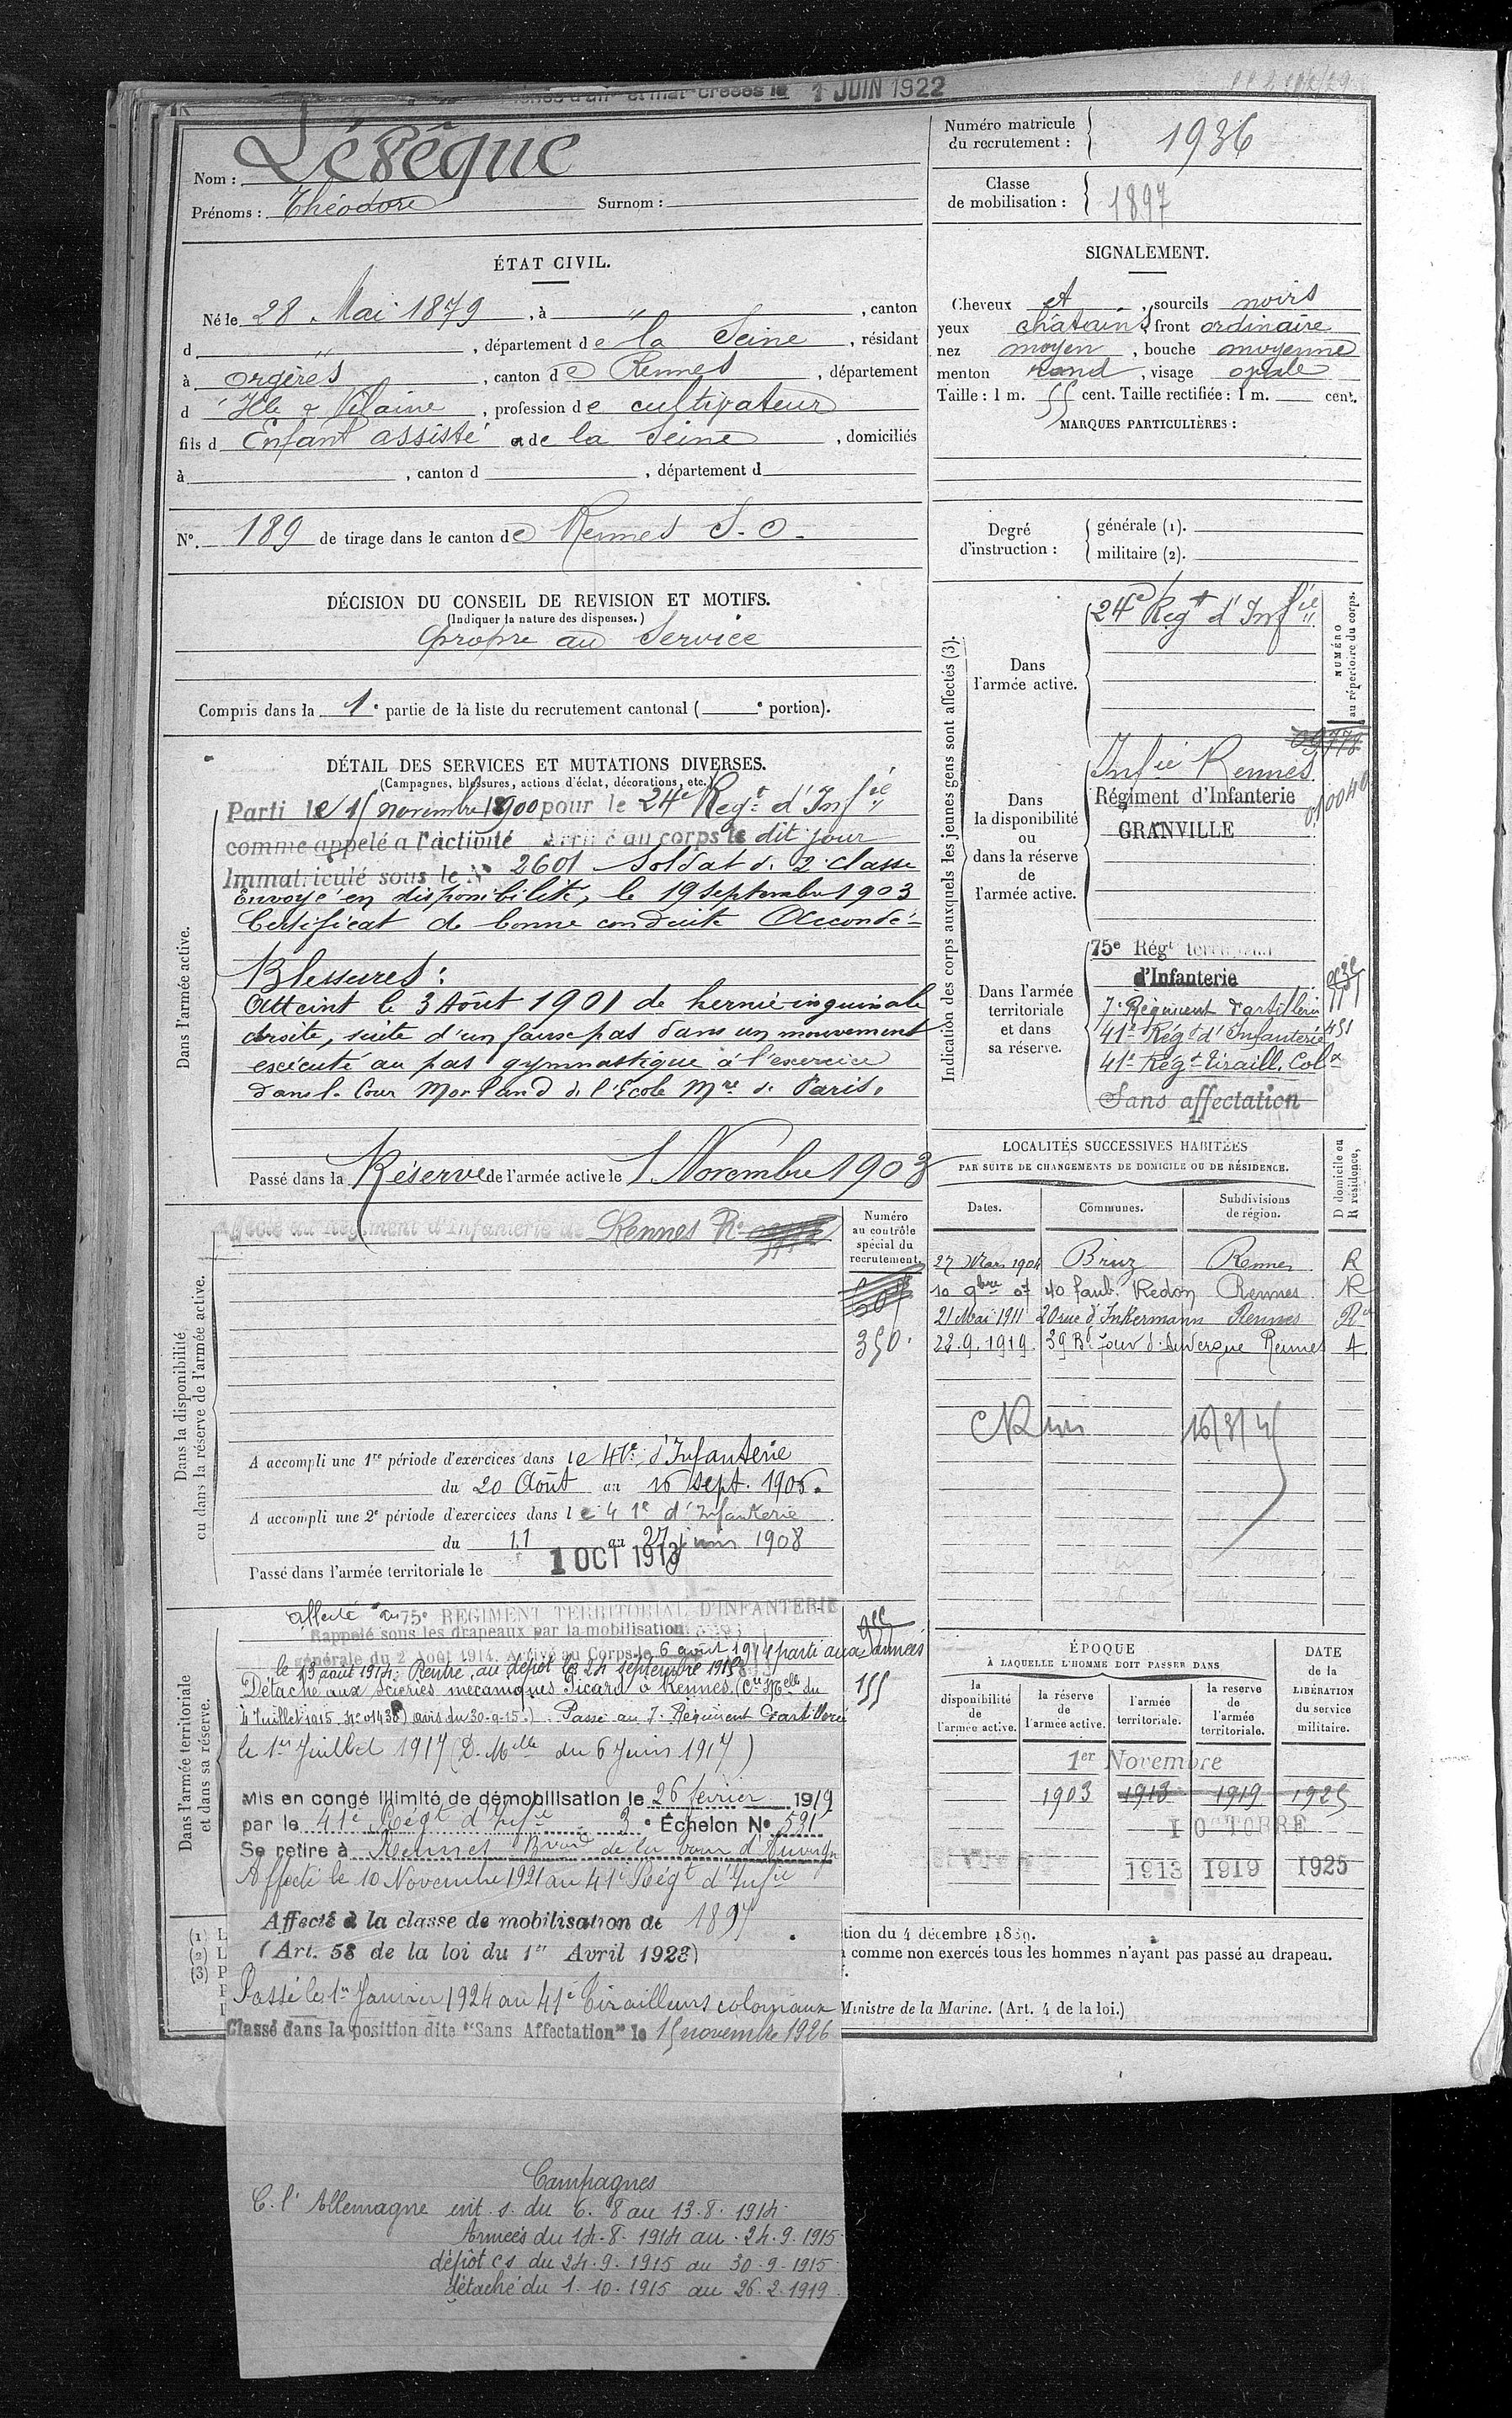 1 JUIN 1922
Nom : Lévêque
Prénoms : Théodore Surnom :
Numéro matricule du recrutement : 1936
Classe de mobilisation : 1897
ÉTAT CIVIL.
Né le 28 Mai 1879, à " , canton
d " , département de la Seine, résidant
à Orgères, canton de Rennes, département
d'Ille & Vilaine, profession de cultivateur
fils d Enfant assisté et de la Seine, domiciliés
à , canton d , département d
N° 189 de tirage dans le canton de Rennes S.O.
SIGNALEMENT.
Cheveux et , sourcils noirs
yeux châtains, front ordinaire
nez moyen, bouche moyenne
menton rond, visage ovale
Taille : 1 m. 55 cent. Taille rectifiée : 1 m. cent.
MARQUES PARTICULIÈRES :
Degré d'instruction : générale (1).
militaire (2).
DÉCISION DU CONSEIL DE REVISION ET MOTIFS.
(Indiquer la nature des dispenses.)
Propre au Service
Compris dans la 1e partie de la liste du recrutement cantonal ( e portion).
DÉTAIL DES SERVICES ET MUTATIONS DIVERSES.
(Campagnes, blessures, actions d'éclat, décorations, etc.)
Dans l'armée active.
Parti le 15 novembre 1900 pour le 24e Regt d'Infie
comme appelé a l'activité Arrivé au corps le dit jour
Immatriculé sous le No 2601 Soldat de 2 classe
Envoyé en disponibilité, le 19 Septembre 1903
Certificat de bonne conduite Accordé
Blessures :
Atteint le 3 Août 1901 de hernie inguinale
droite, suite d'un faux pas dans un mouvement
exécuté au pas gymnastique à l'exercice
dans la Cour Morland de l'Ecole Mre de Paris.
Passé dans la Réserve de l'armée active le 1 Novembre 1903
Indication des corps auxquels les jeunes gens sont affectés (3).
NUMÉRO au répertoire du corps.
Dans l'armée active.
24e Regt d'Infie
Dans la disponibilité ou dans la réserve de l'armée active.
Infie Rennes
Régiment d'Infanterie
GRANVILLE
Dans l'armée territoriale et dans sa réserve.
75e Régt territorial
d'Infanterie
7e Régiment d'artillerie
41e Régt d'Infanterie 451
41e Régt Tiraill. Colx
Sans affectation
LOCALITÉS SUCCESSIVES HABITÉES
PAR SUITE DE CHANGEMENTS DE DOMICILE OU DE RÉSIDENCE.
Dates. Communes. Subdivisions de région. D domicile ou R résidence.
27 Mars 1904 Bruz Rennes R
10 9bre 07 40 faub. Redon Rennes R
21 Mai 1911 20 rue d'Inkermann Rennes R
22.9.1919 39 Bd Tour d'Auvergne Rennes A
Dans la disponibilité ou dans la réserve de l'armée active.
Affecté au Régiment d'Infanterie de Rennes
Numéro au contrôle spécial du recrutement
350.
A accompli une 1re période d'exercices dans le 41e d'Infanterie
du 20 Août au 16 sept. 1906.
A accompli une 2e période d'exercices dans le 41e d'Infanterie
du 11 au 27 juin 1908
Passé dans l'armée territoriale le 1 OCT 1913
Dans l'armée territoriale et dans sa réserve.
Affecté au 75e REGIMENT TERRITORIAL D'INFANTERIE
Rappelé sous les drapeaux par la mobilisation
générale du 2 Août 1914. Arrivé au Corps le 6 août 1914 parti aux armées
le 13 août 1914. Rentré au dépôt le 24 septembre 1915
Détaché aux Scieries mécaniques Picard à Rennes. (Cre Melle du
4 Juillet 1915 No 01438) avis du 30-9-15.) Passé au 7e Régiment d'artillerie
le 1er Juillet 1917 (D. Melle du 6 Juin 1917)
155
Mis en congé illimité de démobilisation le 26 février 1919
par le 41e Régt d'Infie 3e Échelon No 591
Se retire à Rennes Bvard de la Tour d'Auvergne
Affecté le 10 Novembre 1921 au 41e Régt d'Infie
Affecté à la classe de mobilisation de 1897
(Art. 58 de la loi du 1er Avril 1923)
Passé le 1er Janvier 1924 au 41e Tirailleurs coloniaux
Classé dans la position dite "Sans Affectation" le 15 novembre 1926
ÉPOQUE
À LAQUELLE L'HOMME DOIT PASSER DANS
la disponibilité de l'armée active. la réserve de l'armée active. l'armée territoriale. la reserve de l'armée territoriale.
DATE de la LIBÉRATION du service militaire.
1er Novembre
1903 1913 1919 1925
1 OCTOBRE
1913 1919 1925
(1) L
(2) L
(3) P
tion du 4 décembre 1889.
comme non exercés tous les hommes n'ayant pas passé au drapeau.
Ministre de la Marine. (Art. 4 de la loi.)
Campagnes
C. l'Allemagne int. s. du 6. 8 au 13.8. 1914
Armées du 14.8. 1914 au 24.9.1915
dépôt cs du 24.9.1915 au 30.9.1915
détaché du 1.10.1915 au 26.2.1919